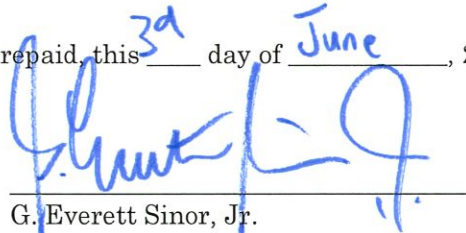 repaid, this 3d day of June, 2
G. Everett Sinor, Jr.